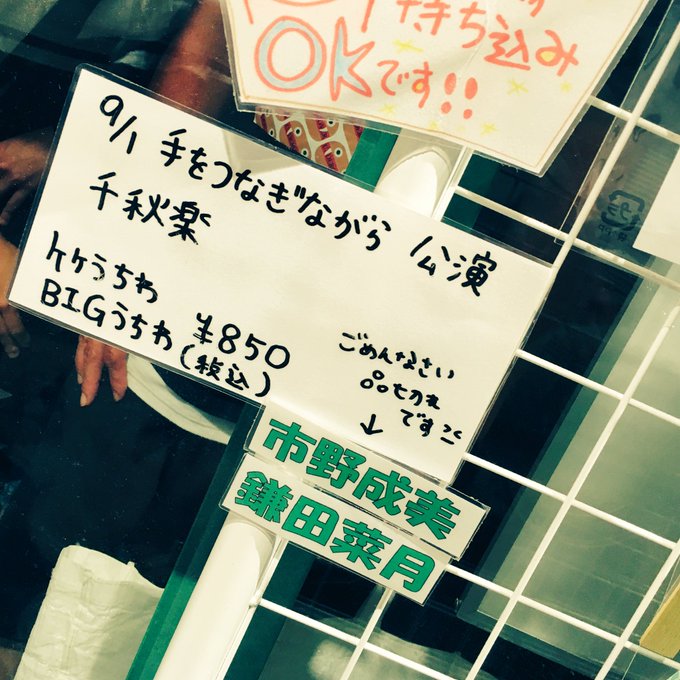 持ち込み
OKです!!
9/1 手をつなぎながら 公演
千秋楽
トケうちわ
BIGうちわ ¥850
(税込)
ごめんなさい
品切れ
です
↓
市野成美
鎌田菜月